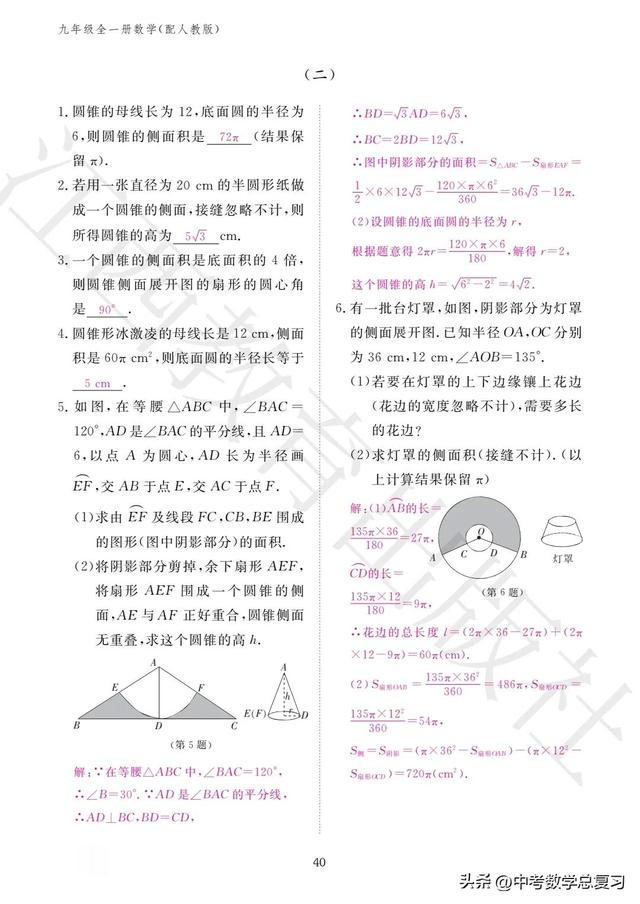 九年级全一册数学(配人教版)
(二)
1.圆锥的母线长为 12,底面圆的半径为
6,则圆锥的侧面积是 72π (结果保
留 π).
2.若用一张直径为 20 cm 的半圆形纸做
成一个圆锥的侧面,接缝忽略不计,则
所得圆锥的高为 5√3 cm.
3.一个圆锥的侧面积是底面积的 4 倍,
则圆锥侧面展开图的扇形的圆心角
是 90° .
4.圆锥形冰激凌的母线长是 12 cm,侧面
积是 60π cm²,则底面圆的半径长等于
5 cm .
5.如图,在等腰 △ABC 中,∠BAC=
120°,AD 是∠BAC 的平分线,且 AD=
6,以点 A 为圆心,AD 长为半径画
EF,交 AB 于点 E,交 AC 于点 F.
(1)求由 EF 及线段 FC,CB,BE 围成
的图形(图中阴影部分)的面积.
(2)将阴影部分剪掉,余下扇形 AEF,
将扇形 AEF 围成一个圆锥的侧
面,AE 与 AF 正好重合,圆锥侧面
无重叠,求这个圆锥的高 h.
A
E
F
B
D
C
A
h
E(F)
r
D
(第 5 题)
解:∵在等腰△ABC 中,∠BAC=120°,
∴∠B=30°.∵AD 是∠BAC 的平分线,
∴AD⊥BC,BD=CD,
∴BD=√3AD=6√3,
∴BC=2BD=12√3,
∴图中阴影部分的面积=S△ABC−S扇形EAF=
1/2×6×12√3−120×π×6²/360=36√3−12π.
(2)设圆锥的底面圆的半径为 r,
根据题意得 2πr=120×π×6/180,解得 r=2,
这个圆锥的高 h=√6²−2²=4√2.
6.有一批台灯罩,如图,阴影部分为灯罩
的侧面展开图.已知半径 OA,OC 分别
为 36 cm,12 cm,∠AOB=135°.
(1)若要在灯罩的上下边缘镶上花边
(花边的宽度忽略不计),需要多长
的花边?
(2)求灯罩的侧面积(接缝不计).(以
上计算结果保留 π)
解:(1)AB的长=
135π×36/180=27π,
CD的长=
135π×12/180=9π,
O
A
C
D
B
灯罩
(第 6 题)
∴花边的总长度 l=(2π×36−27π)+(2π
×12−9π)=60π(cm).
(2)S扇形OAB=135π×36²/360=486π,S扇形OCD=
135π×12²/360=54π,
S侧=S阴影=(π×36²−S扇形OAB)−(π×12²−
S扇形OCD)=720π(cm²).
40
江西教育出版社
头条 @中考数学总复习